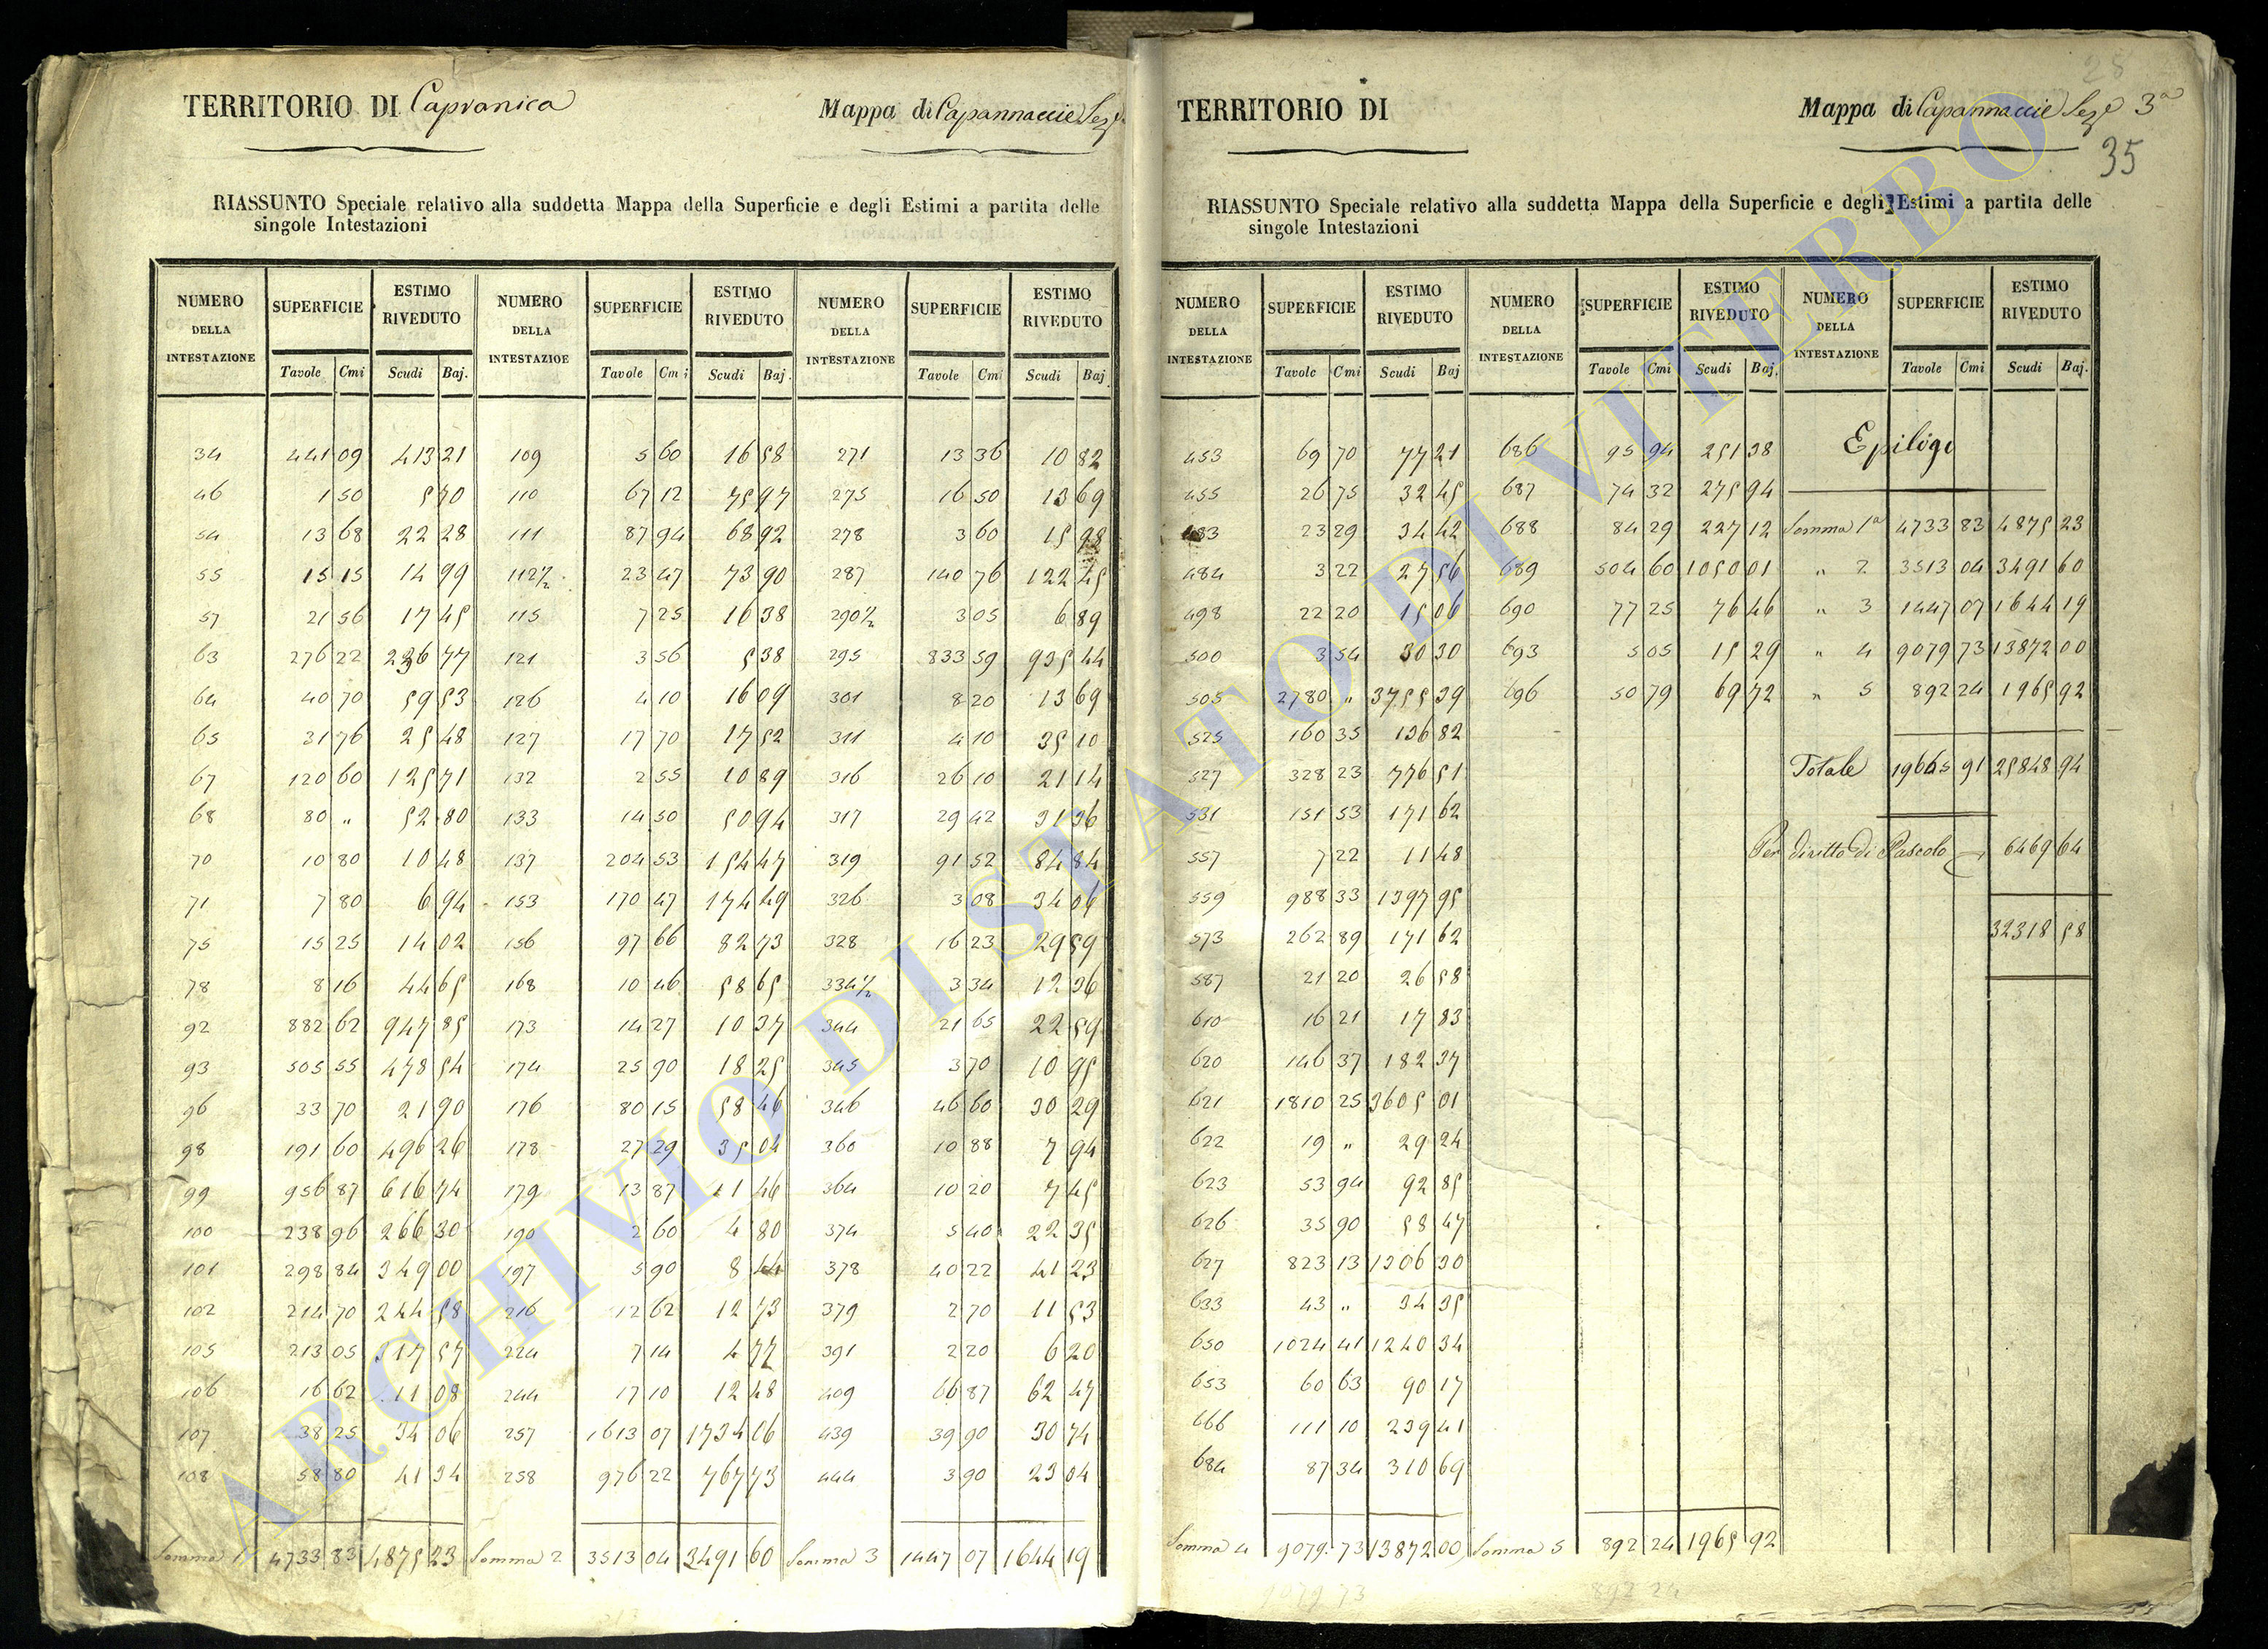 TERRITORIO DI Capranica
Mappa di Capannaccie Sez.e
RIASSUNTO Speciale relativo alla suddetta Mappa della Superficie e degli Estimi a partita delle
singole Intestazioni
NUMERO DELLA INTESTAZIONE SUPERFICIE ESTIMO RIVEDUTO NUMERO DELLA INTESTAZIOE SUPERFICIE ESTIMO RIVEDUTO NUMERO DELLA INTESTAZIONE SUPERFICIE ESTIMO RIVEDUTO
Tavole Cmi Scudi Baj. Tavole Cmi Scudi Baj. Tavole Cmi Scudi Baj.
34 441 09 413 21 109 5 60 16 58 271 13 36 10 82
46 1 50 5 70 110 67 12 75 97 275 16 50 13 69
54 13 68 22 28 111 87 94 68 92 278 3 60 15 98
55 15 15 14 99 112½ 23 47 73 90 287 140 76 122 45
57 21 56 17 45 115 7 25 16 38 290½ 3 05 6 89
63 276 22 236 77 121 3 56 5 38 295 833 59 935 44
64 40 70 59 53 126 4 10 16 09 301 8 20 13 69
65 31 76 25 48 127 17 70 17 52 311 4 10 35 10
67 120 60 125 71 132 2 55 10 89 316 26 10 21 14
68 80 " 52 80 133 14 50 50 94 317 29 42 31 36
70 10 80 10 48 137 204 53 154 47 319 91 52 84 84
71 7 80 6 94 153 170 47 174 49 326 3 08 34 04
75 15 25 14 02 156 97 66 82 73 328 16 23 29 59
78 8 16 44 65 168 10 46 58 65 334½ 3 34 12 36
92 882 62 947 85 173 14 27 10 37 344 21 65 22 59
93 505 55 478 54 174 25 90 18 25 345 3 70 10 95
96 33 70 21 90 176 80 15 58 46 346 46 60 30 29
98 191 60 496 26 178 27 29 35 04 360 10 88 7 94
99 956 87 616 74 179 13 87 11 46 364 10 20 7 45
100 238 96 266 30 190 2 60 4 80 374 5 40 22 35
101 298 84 349 00 197 5 90 8 44 378 40 22 41 23
102 214 70 244 58 216 12 62 12 73 379 2 70 11 53
105 213 05 317 57 224 7 14 4 77 391 2 20 6 20
106 16 62 11 08 244 17 10 12 48 409 66 87 62 47
107 38 25 34 06 257 1613 07 1734 06 439 39 90 30 74
108 58 80 41 34 258 976 22 767 73 444 3 90 23 04
Somma 1a 4733 83 4875 23 Somma 2 3513 04 3491 60 Somma 3 1447 07 1644 19
28
TERRITORIO DI
Mappa di Capannaccie Sez.e 3a
35
RIASSUNTO Speciale relativo alla suddetta Mappa della Superficie e degli Estimi a partita delle
singole Intestazioni
NUMERO DELLA INTESTAZIONE SUPERFICIE ESTIMO RIVEDUTO NUMERO DELLA INTESTAZIONE SUPERFICIE ESTIMO RIVEDUTO NUMERO DELLA INTESTAZIONE SUPERFICIE ESTIMO RIVEDUTO
Tavole Cmi Scudi Baj Tavole Cmi Scudi Baj. Tavole Cmi Scudi Baj.
453 69 70 77 21 686 95 94 251 38 Epilogo
455 26 75 32 45 687 74 32 275 94
483 23 29 34 42 688 84 29 227 12 Somma 1a 4733 83 4875 23
484 3 22 27 56 689 504 60 1050 01 " 2 3513 04 3491 60
498 22 20 15 06 690 77 25 76 46 " 3 1447 07 1644 19
500 3 54 30 30 693 5 05 15 29 " 4 9079 73 13872 00
505 2780 " 3755 39 696 50 79 69 72 " 5 892 24 1965 92
525 160 35 136 82
527 328 23 776 51 Totale 19665 91 25848 94
531 151 53 171 62
557 7 22 11 48 Per diritto di Pascolo 6469 64
559 988 33 1397 95
573 262 89 171 62 32318 58
587 21 20 26 58
610 16 21 17 83
620 146 37 182 37
621 1810 25 3605 01
622 19 " 29 24
623 53 94 92 85
626 35 90 58 47
627 823 13 1306 30
633 43 " 34 35
650 1024 41 1240 34
653 60 63 90 17
666 111 10 239 41
684 87 34 310 69
Somma 4 9079 73 13872 00 Somma 5 892 24 1965 92
9079 73 892 24
ARCHIVIO DI STATO DI VITERBO